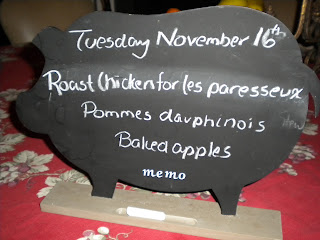 Tuesday November 16th
Roast Chicken for les paresseux
Pommes dauphinois
Baked apples
memo